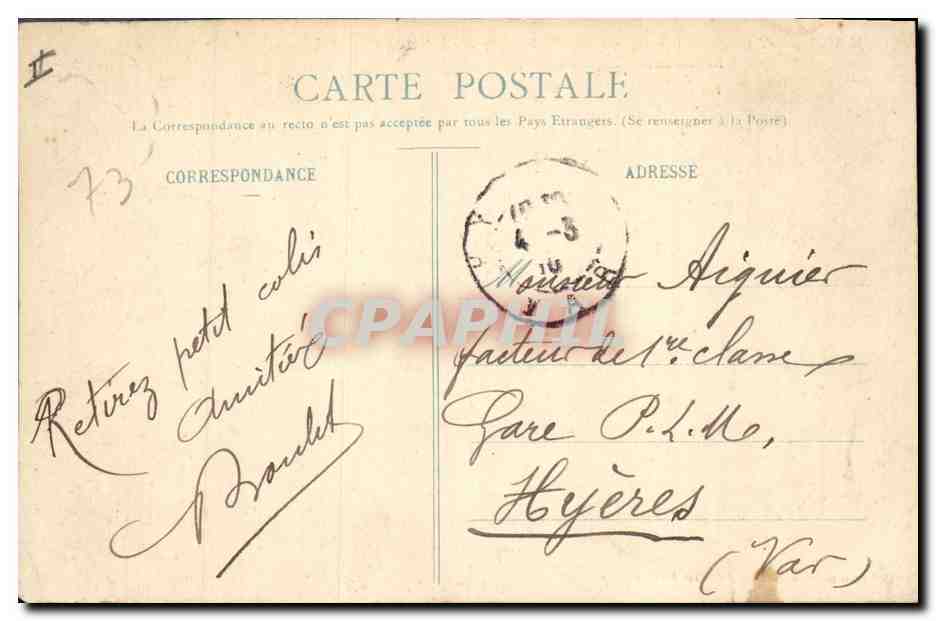 CARTE POSTALE
La Correspondance au recto n'est pas acceptée par tous les Pays Etrangers. (Se renseigner à la Poste)
73
CORRESPONDANCE
Retirez petit colis
amitiés
ADRESSE
4 -3
10
VAR
Monsieur Aiguier
facteur de 1re classe
Gare P.L.M,
Hyères
(Var)
CPAPHIL